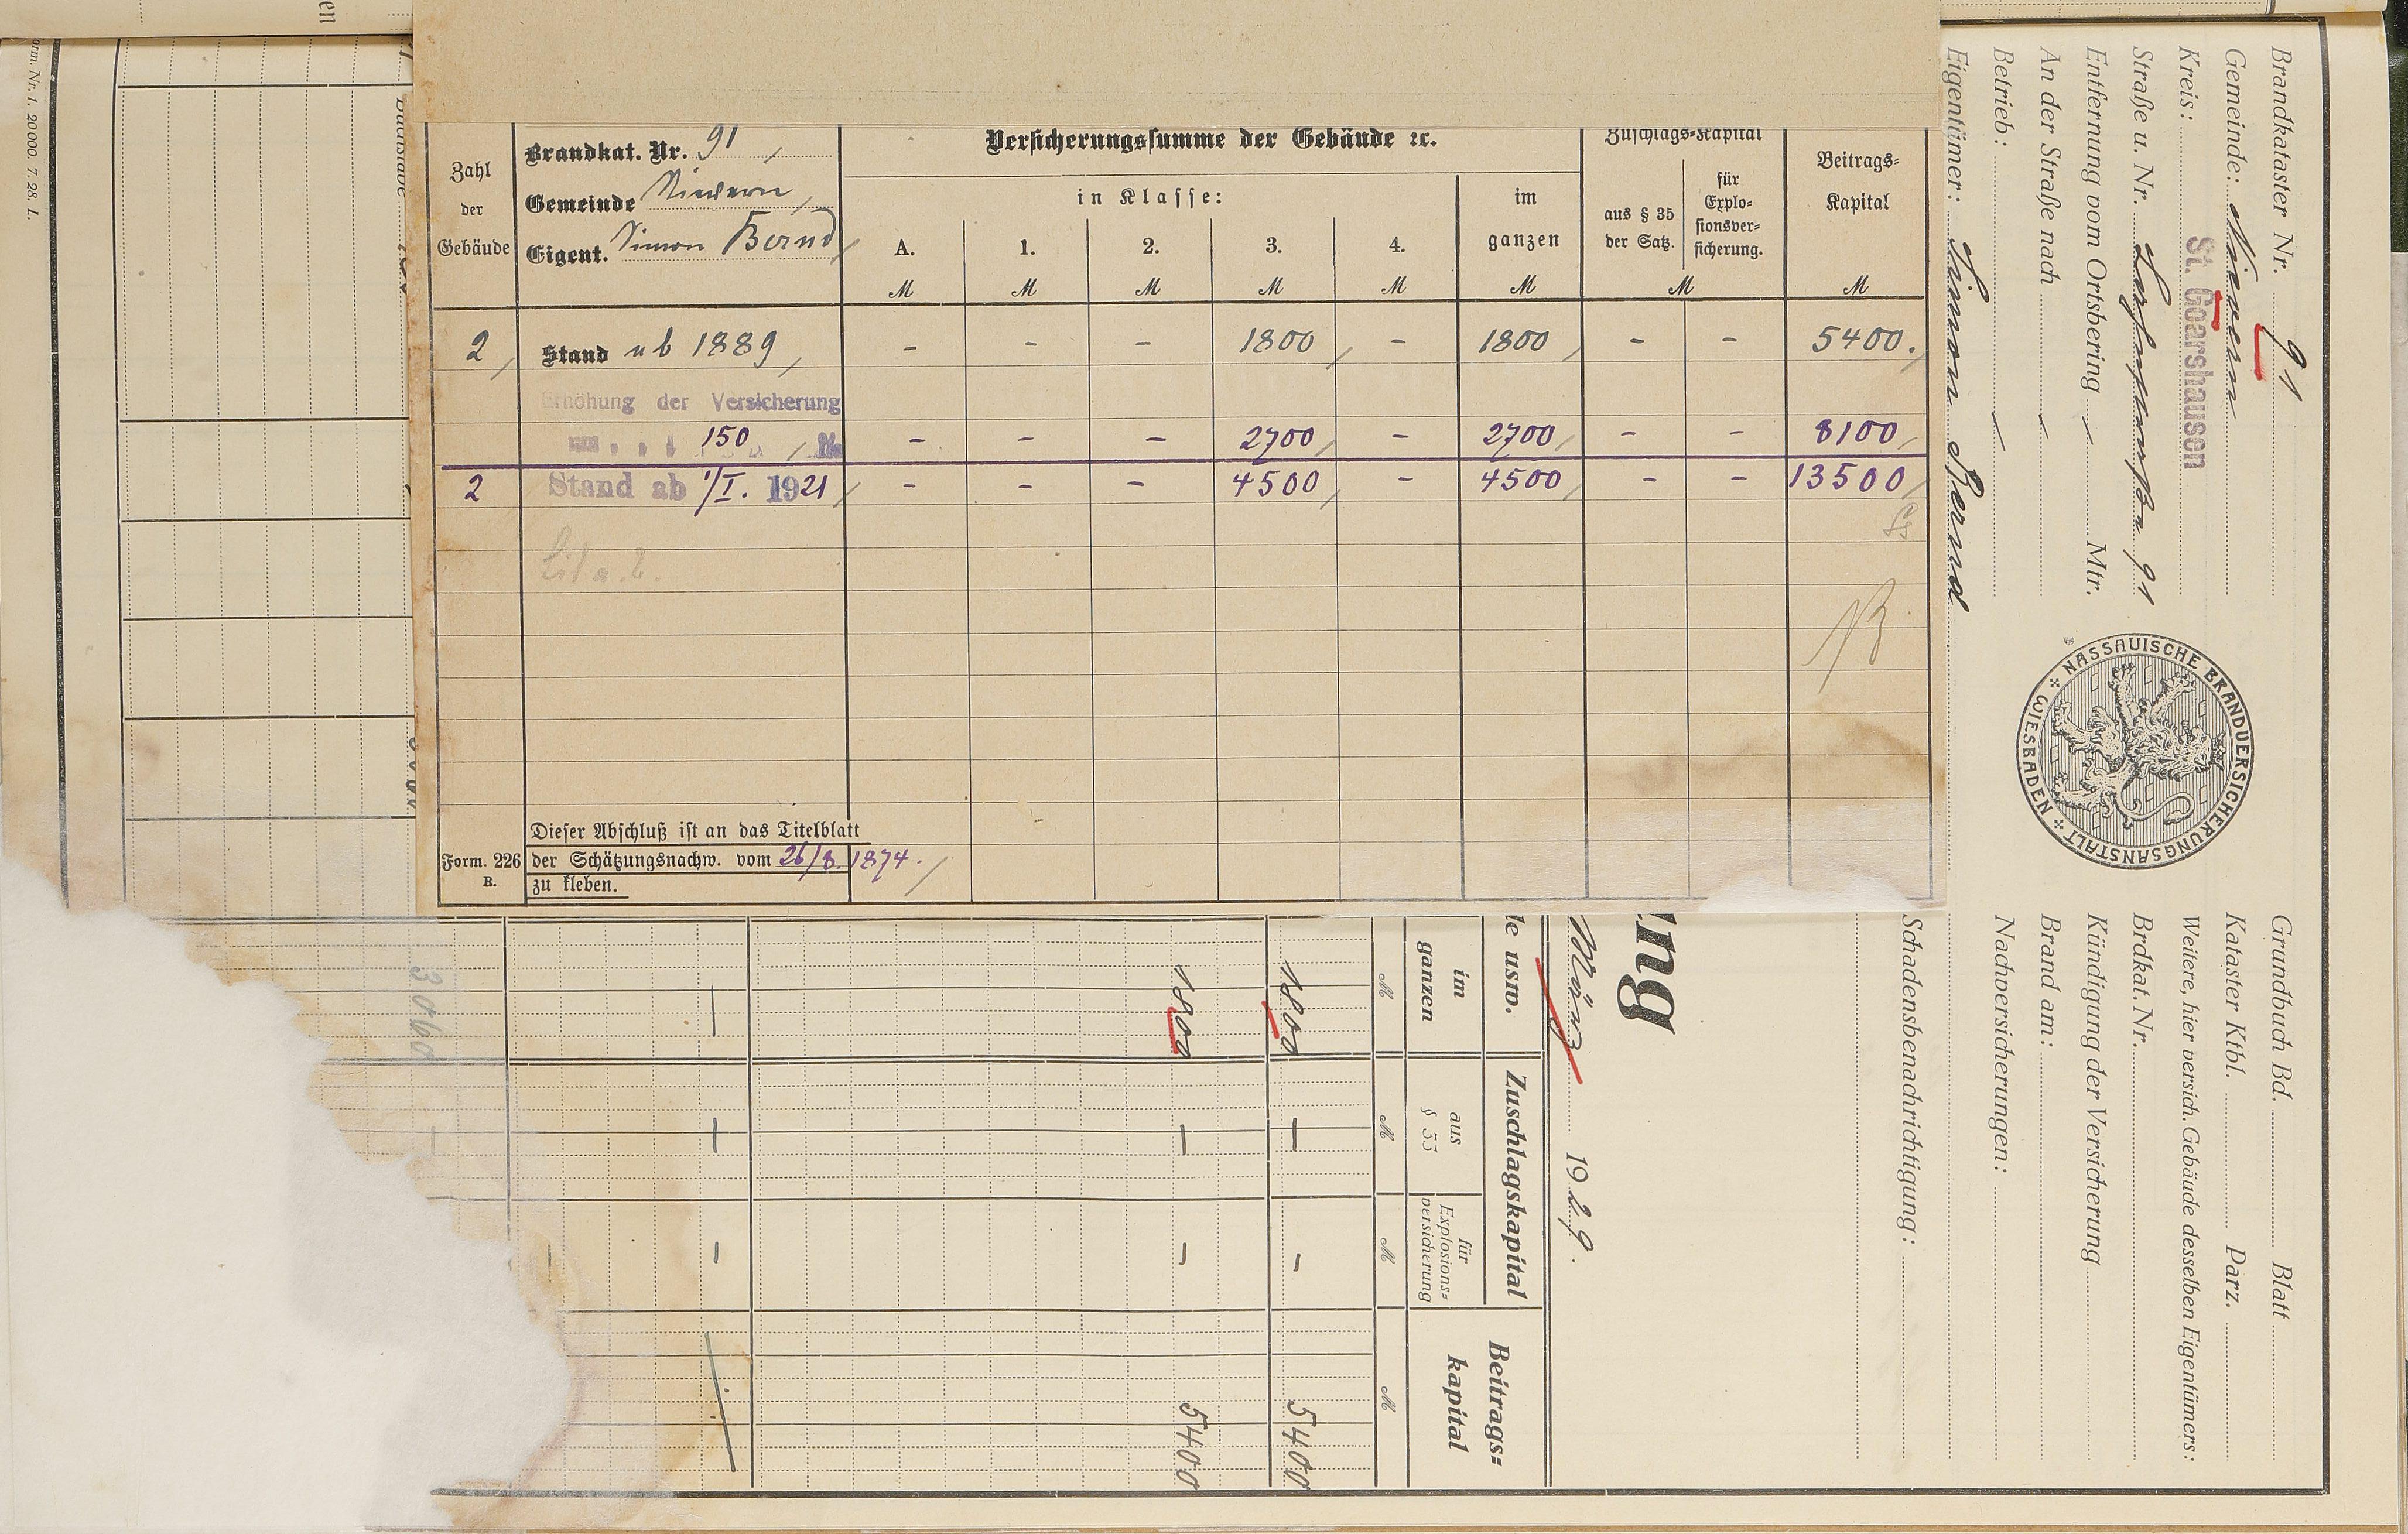 Brandkat. Nr. 91
Gemeinde Nievern
Eigent. Simon Bernd
Zahl der Gebäude
Versicherungssumme der Gebäude ꝛc.
in Klasse:
A. 1. 2. 3. 4.
im ganzen
Zuschlags-Kapital
aus § 35 der Satz.
für Explo-
sionsver-
sicherung.
Beitrags-
Kapital
M M M M M M M M
2 Stand ab 1889 - - - 1800 - 1800 - - 5400.
Erhöhung der Versicherung
um 150 - - - 2700 - 2700 - - 8100
2 Stand ab 1/I. 1921 - - - 4500 - 4500 - - 13500
Dieser Abschluß ist an das Titelblatt
Form. 226 der Schätzungsnachw. vom 26/8. 1874.
B. zu kleben.
Brandkataster Nr. 91
Gemeinde: Nievern
Kreis: St. Goarshausen
Straße u. Nr. 91
Entfernung vom Ortsbering Mtr.
An der Straße nach
Betrieb:
Eigentümer: Simon Bernd
NASSAUISCHE BRANDVERSICHERUNGSANSTALT
WIESBADEN
Grundbuch Bd. Blatt
Kataster Ktbl. Parz.
Weitere, hier versich. Gebäude desselben Eigentümers:
Brdkat. Nr.
Kündigung der Versicherung
Brand am:
Nachversicherungen:
Schadensbenachrichtigung:
ng
März 1929.
le usw.
Zuschlagskapital
Beitrags-
kapital
im
ganzen
aus
§ 33
für
Explosions-
versicherung
M M M M
1800 — - 5400
1800 — - 5400
— — -
3060 —
Buchstabe
orm. Nr. 1. 20000. 7. 28. L.
en